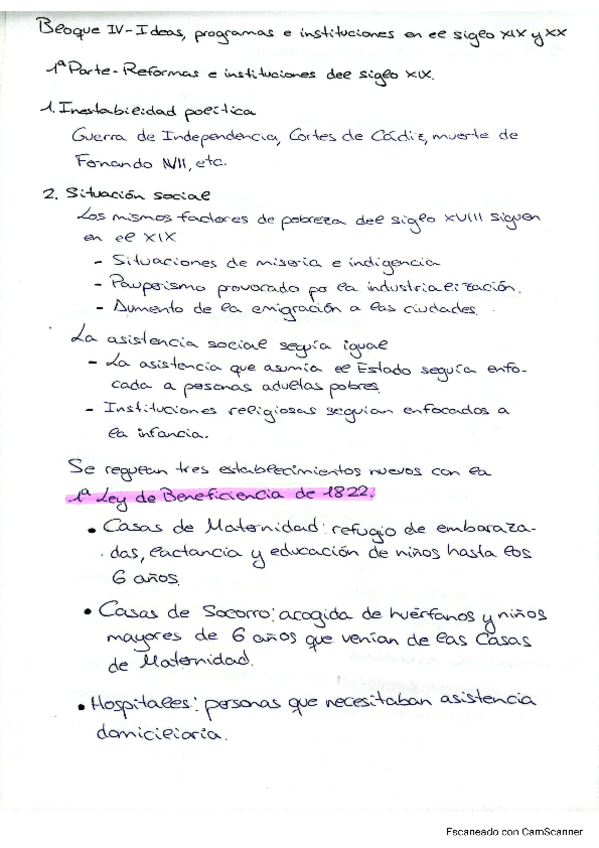 Bloque IV-Ideas, programas e instituciones en el siglo XIX y XX
1ª Parte-Reformas e instituciones del siglo XIX.
1. Inestabilidad política
Guerra de Independencia, Cortes de Cádiz, muerte de
Fernando VII, etc.
2. Situación social
Los mismos factores de pobreza del siglo XVIII siguen
en el XIX
- Situaciones de miseria e indigencia
- Pauperismo provocado po la industrialización.
- Aumento de la emigración a las ciudades.
La asistencia social seguía igual
- La asistencia que asumía el Estado seguía enfo-
cada a personas adultas pobres
- Instituciones religiosas seguían enfocados a
la infancia.
Se regulan tres establecimientos nuevos con la
1ª Ley de Beneficiencia de 1822.
• Casas de Maternidad: refugio de embaraza-
das, lactancia y educación de niños hasta los
6 años.
• Casas de Socorro: acogida de huérfanos y niños
mayores de 6 años que venían de las Casas
de Maternidad.
• Hospitales: personas que necesitaban asistencia
domiciliaria.
Escaneado con CamScanner